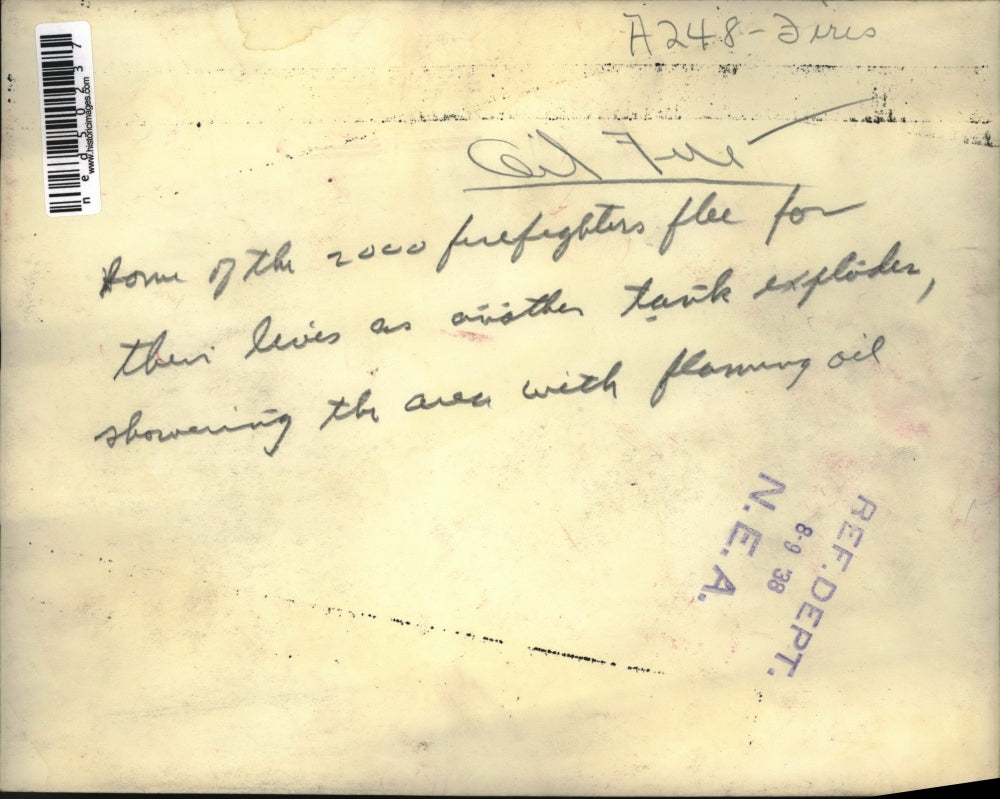 A248-Fires
Oil Fire
Some of the 2000 firefighters flee for
their lives as another tank explodes,
showering the area with flaming oil
REF. DEPT.
8-9 '38
N.E.A.
ned50237
www.historicimages.com